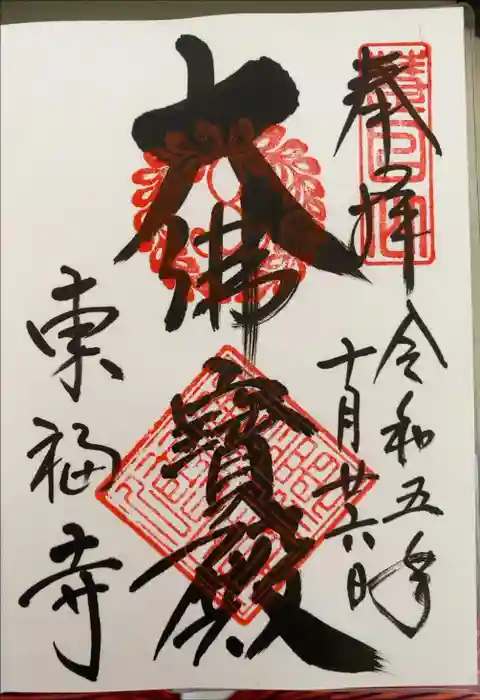 奉拝
令和五年
十月廿六日
大佛寶殿
東福寺